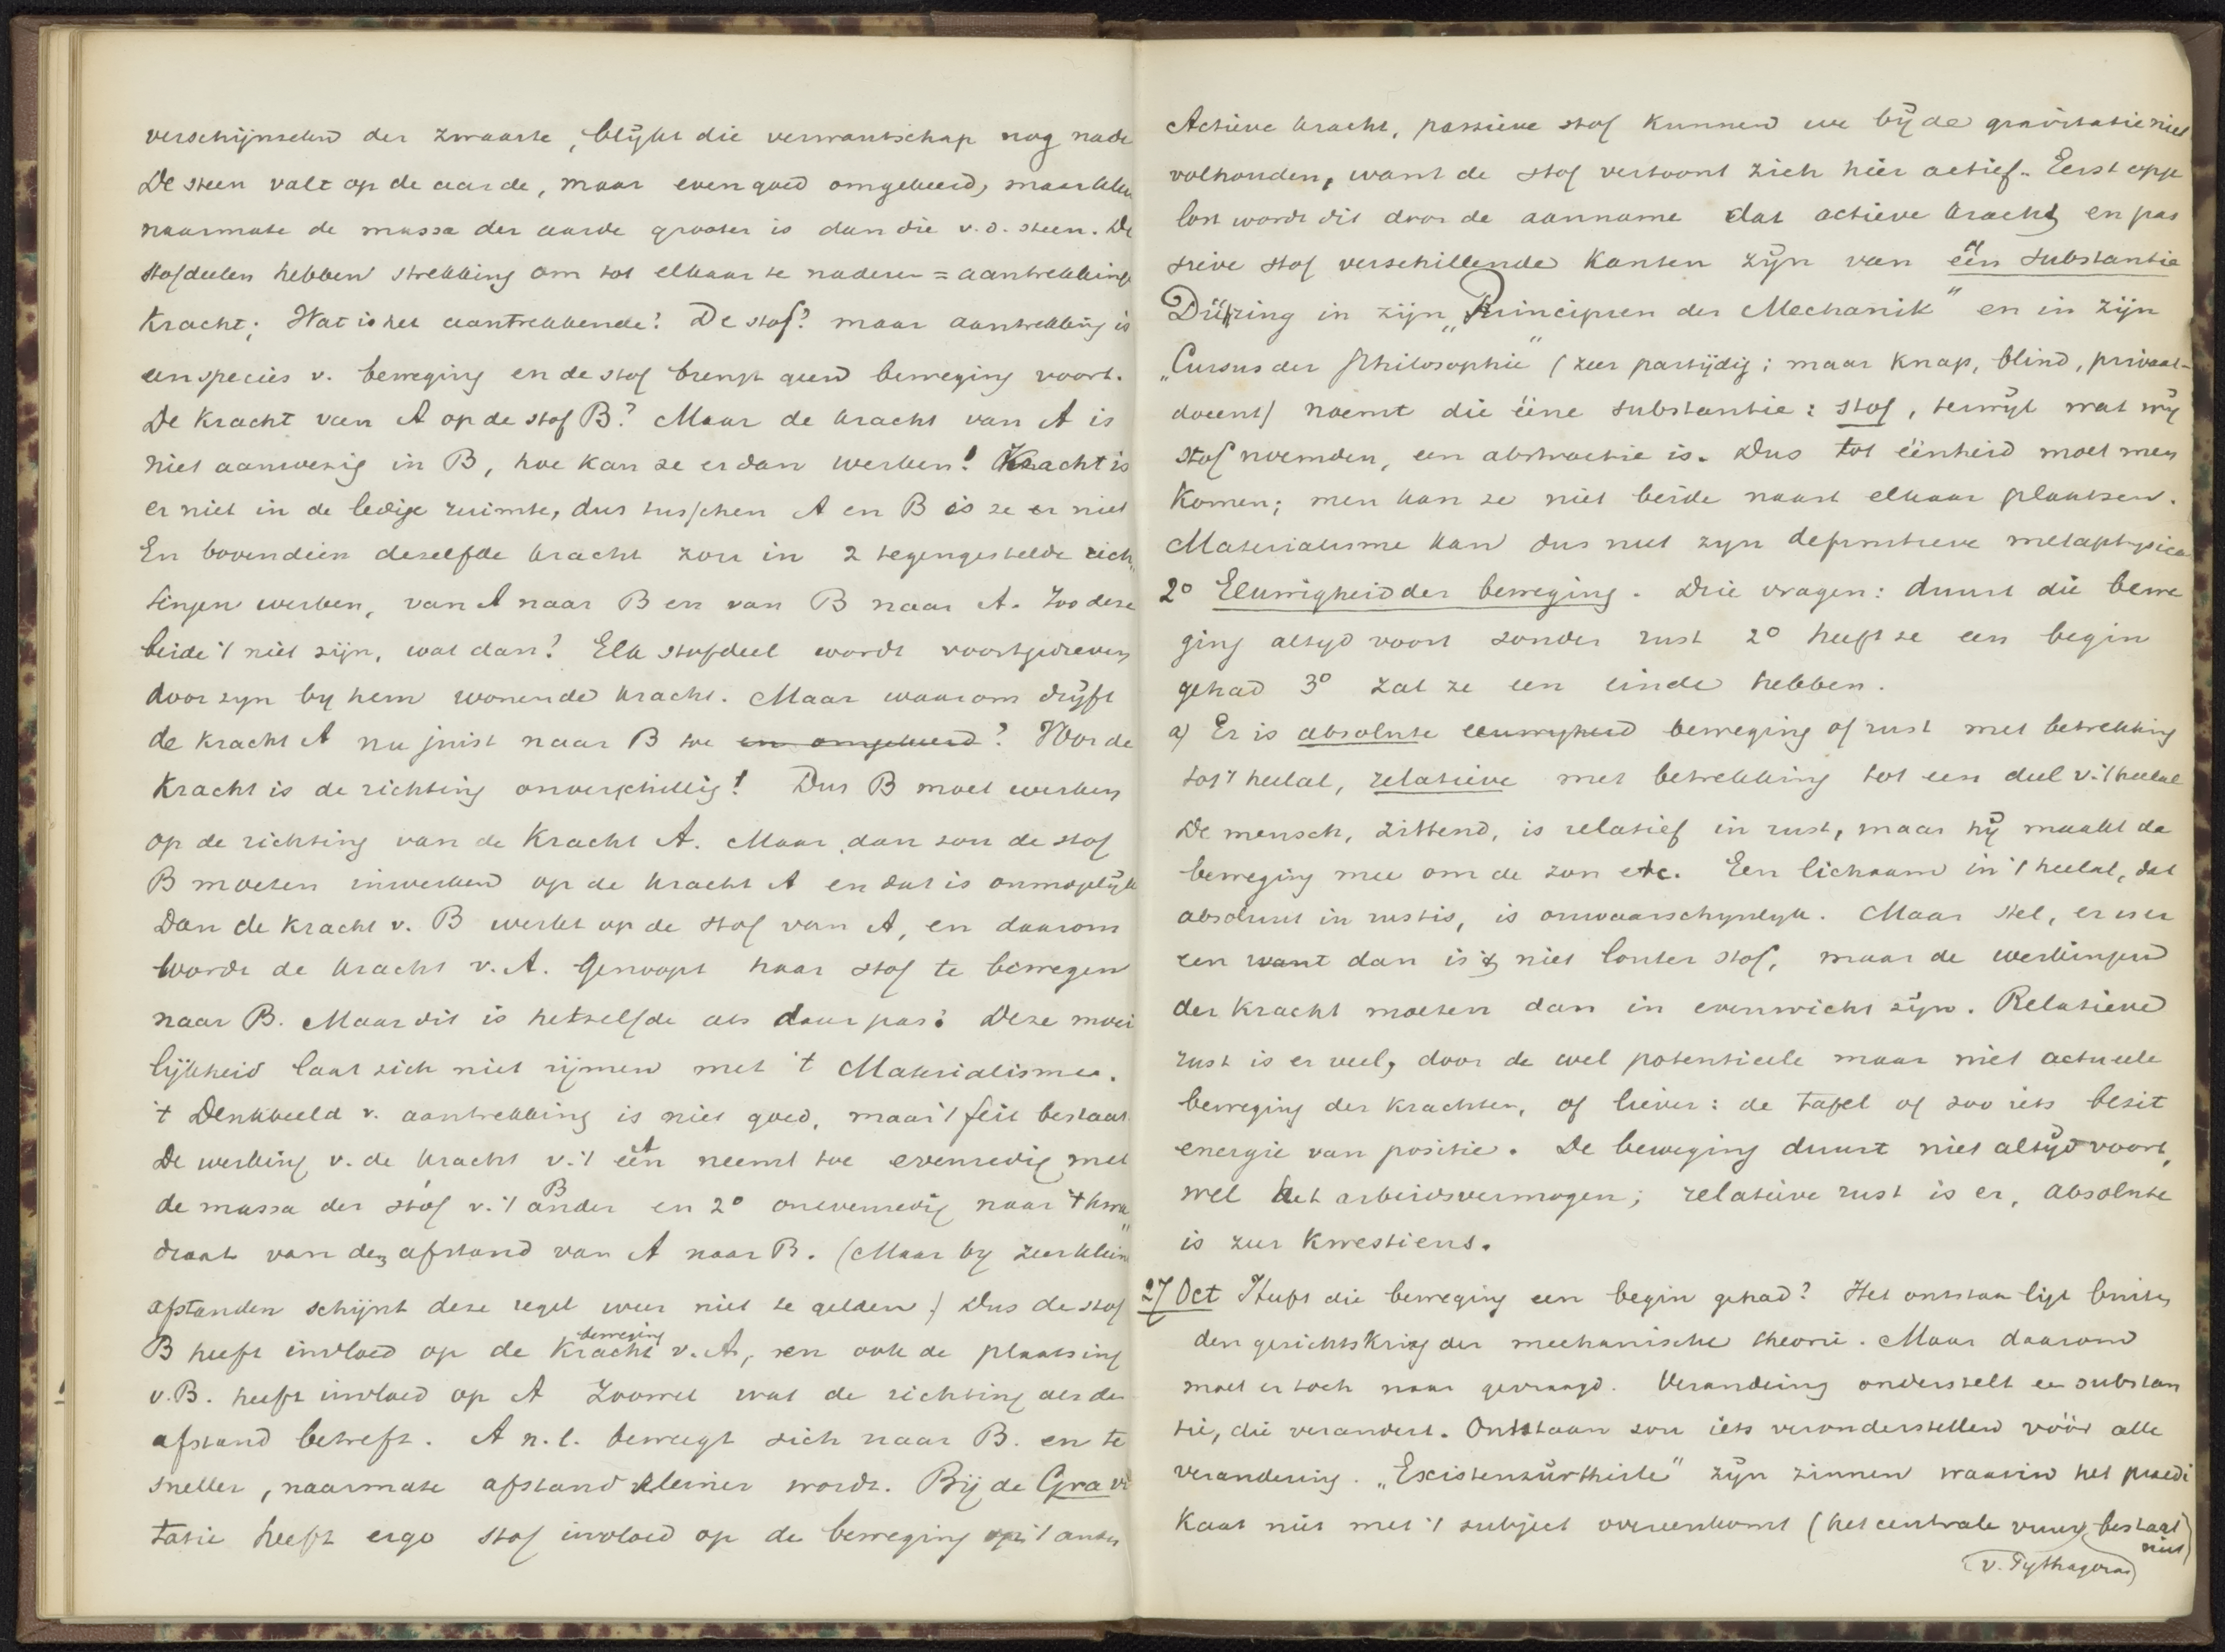 verschijnselen der zwaarte, blijkt die verwantschap nog nade
De steen valt op de aarde, maar even goed omgekeerd, maar klei
naarmate de massa der aarde grooter is dan die v. d. steen. De
stofdeelen hebben strekking om tot elkaar te naderen = aantrekkings
kracht; Wat is het aantrekkende? De stof? maar aantrekking is
een species v. beweging en de stof brengt geen beweging voort.
De kracht van A op de stof B? Maar de kracht van A is
niet aanwezig in B, hoe kan ze er dan werken! Kracht is
er niet in de ledige ruimte, dus tusschen A en B is ze er niet
En bovendien dezelfde kracht zou in 2 tegengestelde rich„
tingen werken, van A naar B en van B naar A. Zoo deze
beide 't niet zijn, wat dan? Elk stofdeel wordt voortgedreven
door zyn by hem wonende kracht. Maar waarom drijft
de kracht A nu juist naar B toe en omgekeerd? Voor de
kracht is de richting onverschillig! Dus B moet werken
op de richting van de kracht A. Maar dan zou de stof
B moeten inwerken op de kracht A en dat is onmogelijk
Dan de kracht v. B werkt op de stof van A, en daarom
wordt de kracht v. A. genoopt haar stof te bewegen
naar B. Maar dit is hetzelfde als daar pas! Deze moei
lijkheid laat zich niet rijmen met 't Materialisme.
't Denkbeeld v. aantrekking is niet goed, maar 't feit bestaat.
De werking v. de kracht v. 't één A neemt toe evenredig met
de massa der stof v. 't ander B en 2° onevenredig naar 't kwa„
draat van den afstand van A naar B. (Maar by zeer klein
afstanden schijnt deze regel weer niet te gelden.) Dus de stof
B heeft invloed op de kracht beweging v. A, en ook de plaatsing
v. B. heeft invloed op A zoowel wat de richting als de
afstand betreft. A n.l. beweegt zich naar B. en te
sneller, naarmate afstand kleiner wordt. Bij de Gravi
tatie heeft ergo stof invloed op de beweging op 't ander
Actieve kracht, passieve stof kunnen we bij de gravitatie niet
volhouden, want de stof vertoont zich hier actief. Eerst opge
lost wordt dit door de aanname dat actieve kracht en pas
sieve stof verschillende kanten zijn van één substantie
Dühring in zijn „Principien der Mechanik" en in zijn
„Cursus der Philosophie" (zeer partijdig; maar knap, blind, privaat-
docent) noemt die ééne substantie: stof, terwijl wat wij
stof noemden, een abstractie is. Dus tot éénheid moet men
komen; men kan ze niet beide naast elkaar plaatsen.
Materialisme kan dus niet zyn definitieve metaphysica
2° Eeuwigheid der beweging. Drie vragen: duurt die bewe
ging altyd voort zonder rust 2° heeft ze een begin
gehad 3° zal ze een einde hebben.
a) Er is absolute eeuwigheid beweging of rust met betrekking
tot 't heelal, relatieve met betrekking tot een deel v. 't heelal
De mensch, zittend, is relatief in rust, maar hij maakt de
beweging mee om de zon etc. Een lichaam in 't heelal, dat
absoluut in rust is, is onwaarschynlyk. Maar stel, er is er
een want dan is 't niet louter stof, maar de werkingen
der kracht moeten dan in evenwicht zijn. Relatieve
rust is er veel, door de wel potentieele maar niet actueele
beweging der krachten, of liever: de tafel of zoo iets bezit
energie van positie. De beweging duurt niet altijd voort,
wel het arbeidsvermogen; relatieve rust is er, absolute
is zeer kwestieus.
27 Oct Heeft die beweging een begin gehad? Het ontstaan ligt buiten
den gezichtskring der mechanische theorie. Maar daarom
moet er toch naar gevraagd. Verandering onderstelt een substan
tie, die verandert. Ontstaan zou iets veronderstellen vóór alle
verandering. „Existenzürtheile" zijn zinnen waarin het praedi
kaat niet met 't subject overeenkomt (het centrale vuur bestaat niet)
(v. Pythagoras)